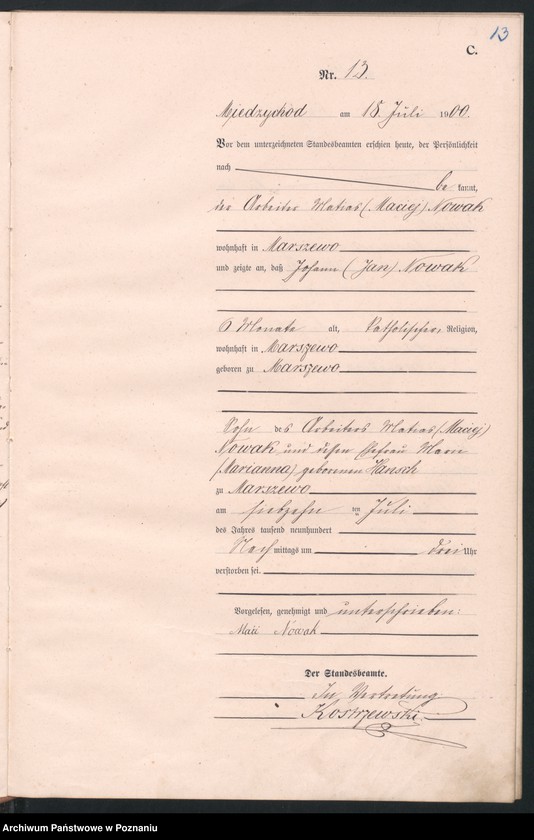 13
C.
Nr. 13.
Miedzychod am 18. Juli 1900.
Vor dem unterzeichneten Standesbeamten erschien heute, der Persönlichkeit
nach
be kannt,
der Arbeiter Matias (Maciej) Nowak
wohnhaft in Marszewo
und zeigte an, daß Johann (Jan) Nowak
6 Monate alt, katholischer Religion,
wohnhaft in Marszewo
geboren zu Marszewo
Sohn des Arbeiters Matias (Maciej)
Nowak und dessen Ehefrau Marie
(Marianna) geborenen Hansch
zu Marszewo
am siebzehn ten Juli
des Jahres tausend neunhundert
Nach mittags um drei Uhr
verstorben sei.
Vorgelesen, genehmigt und unterschrieben:
Nowak
Der Standesbeamte.
In Vertretung
Kostrzewski
Archiwum Państwowe w Poznaniu